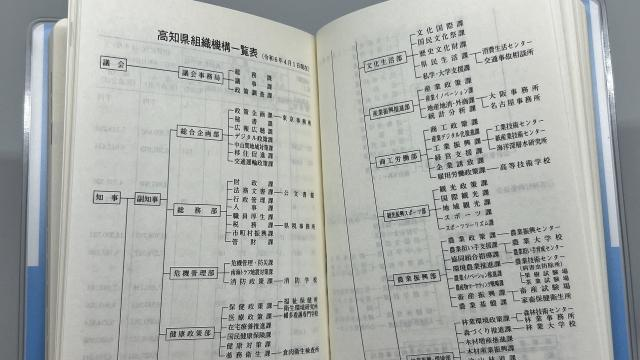 高知県組織機構一覧表 (令和6年4月1日現在)
議会
議会事務局
総務課
議事課
政策調査課
知事
副知事
総合企画部
政策企画課
東京事務所
秘書課
広報広聴課
デジタル政策課
中山間地域対策課
移住促進課
交通運輸政策課
総務部
財政課
法務文書課
公文書館
行政管理課
人事課
職員厚生課
税務課
県税事務所
市町村振興課
管財課
危機管理部
危機管理・防災課
南海トラフ地震対策課
消防政策課
消防学校
健康政策部
保健政策課
福祉保健所
衛生環境研究所
幡多看護専門学校
医療政策課
在宅療養推進課
国民健康保険課
健康対策課
薬務衛生課
食肉衛生検査所
文化生活部
文化国際課
国民文化祭課
歴史文化財課
県民生活課
消費生活センター
交通事故相談所
私学・大学支援課
産業振興推進部
産業政策課
産業イノベーション課
地産地消・外商課
大阪事務所
名古屋事務所
統計分析課
商工労働部
商工政策課
産業デジタル化推進課
工業振興課
工業技術センター
紙産業技術センター
海洋深層水研究所
経営支援課
企業誘致課
雇用労働政策課
高等技術学校
観光振興スポーツ部
観光政策課
国際観光課
地域観光課
スポーツ課
スポーツツーリズム課
農業振興部
農業政策課
農業振興センター
農業担い手支援課
農業大学校
農業担い手育成センター
協同組合指導課
環境農業推進課
農業技術センター
(病害虫防除所)
果樹試験場
茶業試験場
農業イノベーション推進課
農産物マーケティング戦略課
畜産振興課
畜産試験場
家畜保健衛生所
農業基盤課
林業環境政策課
森林技術センター
林業事務所
林業大学校
森づくり推進課
木材増産推進課
木材産業振興課